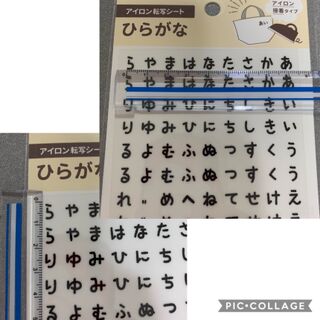 アイロン転写シート
ひらがな
あい
アイロン
接着タイプ
らやまはなたさかあ
らやまはなたさかあ
りゆみひにちしきい
りゆみひにちしきい
るよむふぬつすくう
るよむふぬつすくう
れ゛めへねてせけえ
アイロン転写シート
ひらがな
らやまはなたさ
らやまはなたさ
りゆみひにち
りゆみひにち
るよむふぬつ
PIC•COLLAGE